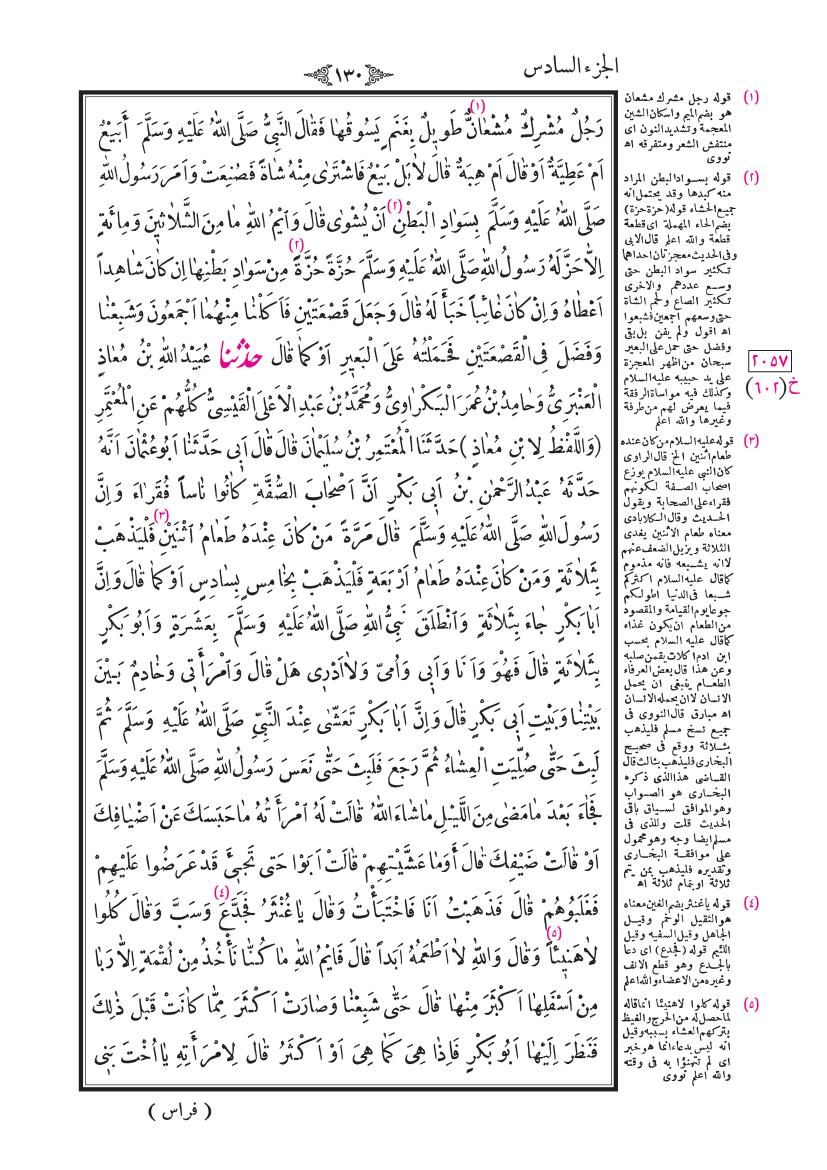 الجزء السادس
١٣٠
رَجُلٌ مُشْرِكٌ مُشْعَانٌّ (١) طَوِيلٌ بِغَنَمٍ يَسُوقُهَا فَقَالَ النَّبِىُّ صَلَّى اللهُ عَلَيْهِ وَسَلَّمَ أَبَيْعٌ
اَمْ عَطِيَّةٌ اَوْ قَالَ اَمْ هِبَةٌ قَالَ لَا بَلْ بَيْعٌ فَاشْتَرَى مِنْهُ شَاةً فَصُنِعَتْ وَاَمَرَ رَسُولُ اللهِ
صَلَّى اللهُ عَلَيْهِ وَسَلَّمَ بِسَوَادِ الْبَطْنِ (٢) اَنْ يُشْوٰى قَالَ وَاَيْمُ اللهِ مَا مِنَ الثَّلَاثِينَ وَمِائَةٍ
اِلَّا حَزَّ لَهُ رَسُولُ اللهِ صَلَّى اللهُ عَلَيْهِ وَسَلَّمَ حُزَّةً حُزَّةً (٢) مِنْ سَوَادِ بَطْنِهَا اِنْ كَانَ شَاهِداً
اَعْطَاهُ وَاِنْ كَانَ غَائِباً خَبَأَ لَهُ قَالَ وَجَعَلَ قَصْعَتَيْنِ فَاَكَلْنَا مِنْهُمَا اَجْمَعُونَ وَشَبِعْنَا
وَفَضَلَ فِى الْقَصْعَتَيْنِ فَحَمَلْتُهُ عَلَى الْبَعِيرِ اَوْ كَمَا قَالَ حدثنا عُبَيْدُ اللهِ بْنُ مُعَاذٍ
الْعَنْبَرِىُّ وَحَامِدُ بْنُ عُمَرَ الْبَكْرَاوِىُّ وَمُحَمَّدُ بْنُ عَبْدِ الْاَعْلَى الْقَيْسِىُّ كُلُّهُمْ عَنِ الْمُعْتَمِرِ
(وَاللَّفْظُ لِابْنِ مُعَاذٍ) حَدَّثَنَا الْمُعْتَمِرُ بْنُ سُلَيْمَانَ قَالَ قَالَ اَبِى حَدَّثَنَا اَبُو عُثْمَانَ اَنَّهُ
حَدَّثَهُ عَبْدُ الرَّحْمٰنِ بْنُ اَبِى بَكْرٍ اَنَّ اَصْحَابَ الصُّفَّةِ كَانُوا نَاساً فُقَرَاءَ وَاِنَّ
رَسُولَ اللهِ صَلَّى اللهُ عَلَيْهِ وَسَلَّمَ قَالَ مَرَّةً مَنْ كَانَ عِنْدَهُ طَعَامُ اثْنَيْنِ (٣) فَلْيَذْهَبْ
بِثَلَاثَةٍ وَمَنْ كَانَ عِنْدَهُ طَعَامُ اَرْبَعَةٍ فَلْيَذْهَبْ بِخَامِسٍ بِسَادِسٍ اَوْ كَمَا قَالَ وَاِنَّ
اَبَا بَكْرٍ جَاءَ بِثَلَاثَةٍ وَانْطَلَقَ نَبِىُّ اللهِ صَلَّى اللهُ عَلَيْهِ وَسَلَّمَ بِعَشَرَةٍ وَاَبُو بَكْرٍ
بِثَلَاثَةٍ قَالَ فَهُوَ وَاَنَا وَاَبِى وَاُمِّى وَلَا اَدْرِى هَلْ قَالَ وَامْرَأَتِى وَخَادِمٌ بَيْنَ
بَيْتِنَا وَبَيْتِ اَبِى بَكْرٍ قَالَ وَاِنَّ اَبَا بَكْرٍ تَعَشّٰى عِنْدَ النَّبِىِّ صَلَّى اللهُ عَلَيْهِ وَسَلَّمَ ثُمَّ
لَبِثَ حَتّٰى صُلِّيَتِ الْعِشَاءُ ثُمَّ رَجَعَ فَلَبِثَ حَتّٰى نَعَسَ رَسُولُ اللهِ صَلَّى اللهُ عَلَيْهِ وَسَلَّمَ
فَجَاءَ بَعْدَ مَا مَضٰى مِنَ اللَّيْلِ مَا شَاءَ اللهُ قَالَتْ لَهُ امْرَأَتُهُ مَا حَبَسَكَ عَنْ اَضْيَافِكَ
اَوْ قَالَتْ ضَيْفِكَ قَالَ أَوَمَا عَشَّيْتِهِمْ قَالَتْ اَبَوْا حَتّٰى تَجِىءَ قَدْ عَرَضُوا عَلَيْهِمْ
فَغَلَبُوهُمْ قَالَ فَذَهَبْتُ اَنَا فَاخْتَبَأْتُ وَقَالَ يَا غُنْثَرُ فَجَدَّعَ (٤) وَسَبَّ وَقَالَ كُلُوا
لَا هَنِيئاً (٥) وَقَالَ وَاللهِ لَا اَطْعَمُهُ اَبَداً قَالَ فَايْمُ اللهِ مَا كُنَّا نَأْخُذُ مِنْ لُقْمَةٍ اِلَّا رَبَا
مِنْ اَسْفَلِهَا اَكْثَرَ مِنْهَا قَالَ حَتّٰى شَبِعْنَا وَصَارَتْ اَكْثَرَ مِمَّا كَانَتْ قَبْلَ ذٰلِكَ
فَنَظَرَ اِلَيْهَا اَبُو بَكْرٍ فَاِذَا هِىَ كَمَا هِىَ اَوْ اَكْثَرُ قَالَ لِامْرَأَتِهِ يَا اُخْتَ بَنِى
( فراس )
(١) قوله رجل مشرك مشعان
هو بضم الميم واسكان الشين
المعجمة وتشديد النون اى
منتفش الشعر ومتفرقه اه
نووى
(٢) قوله بسواد البطن المراد
منه كبدها وقد يحتمل انه
جميع الحشاء قوله (حزة حزة)
بضم الحاء المهملة اى قطعة
قطعة والله اعلم قال الابى
وفى الحديث معجزتان احداها
تكثير سواد البطن حتى
وسع عددهم والاخرى
تكثير الصاع ولحم الشاة
حتى وسعهم اجمعين فشبعوا
اه اقول ولم يفن بل بقى
وفضل حتى حمل على البعير
سبحان من اظهر المعجزة
على يد حبيبه عليه السلام
وكذلك فيه مواساة الرفقة
فيما يعرض لهم من طرفة
وغيرها والله اعلم
٢٠٥٧
خ (٦٠٢)
(٣) قوله عليه السلام من كان عنده
طعام اثنين الخ قال الراوى
كان النبى عليه السلام يوزع
اصحاب الصفة لكونهم
فقراء على الصحابة ويقول
الحديث وقال الكلابادى
معناه طعام الاثنين يغدى
الثلاثة ويزيل الضعف عنهم
لا انه يشبعه فانه مذموم
كما قال عليه السلام اكثركم
شبعا فى الدنيا اطولكم
جوعا يوم القيامة والمقصود
من الطعام ان يكون غذاء
كما قال عليه السلام بحسب
ابن ادم اكلات يقمن صلبه
وعن هذا قال بعض العرفاء
الطعام ينبغى ان يحمل
الانسان لا ان يحمله الانسان
اه مبارق قال النووى فى
جميع نسخ مسلم فليذهب
بثلاثة ووقع فى صحيح
البخارى فليذهب بثالث قال
القاضى هذا الذى ذكره
البخارى هو الصواب
وهو الموافق لسياق باقى
الحديث قلت وللذى فى
مسلم ايضا وجه وهو محمول
على موافقة البخارى
وتقديره فليذهب بمن يتم
ثلاثة او بتمام ثلاثة اه
(٤) قوله يا غنثر بضم الغين معناه
هو الثقيل الوخم وقيل
الجاهل وقيل السفيه وقيل
اللئيم قوله (فجدع) اى دعا
بالجدع وهو قطع الانف
وغيره من الاعضاء والله اعلم
(٥) قوله كلوا لا هنيئا انما قاله
لما حصل له من الحرج والغيظ
بتركهم العشاء بسببه وقيل
انه ليس بدعاء انما هو خبر
اى لم تتهنؤا به فى وقته
والله اعلم نووى